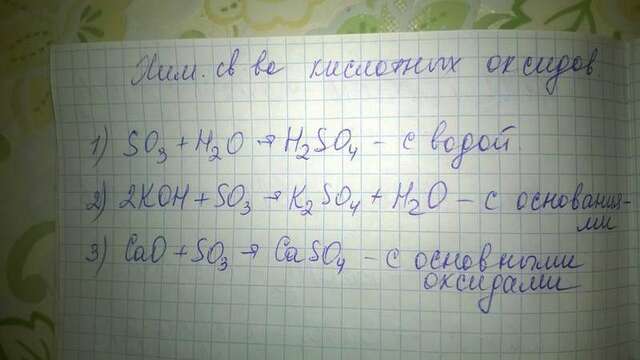 Хим. св ва кислотных оксидов
1) SO₃ + H₂O → H₂SO₄ - с водой
2) 2KOH + SO₃ → K₂SO₄ + H₂O - с основания-
ми
3) CaO + SO₃ → CaSO₄ - с основными
оксидами